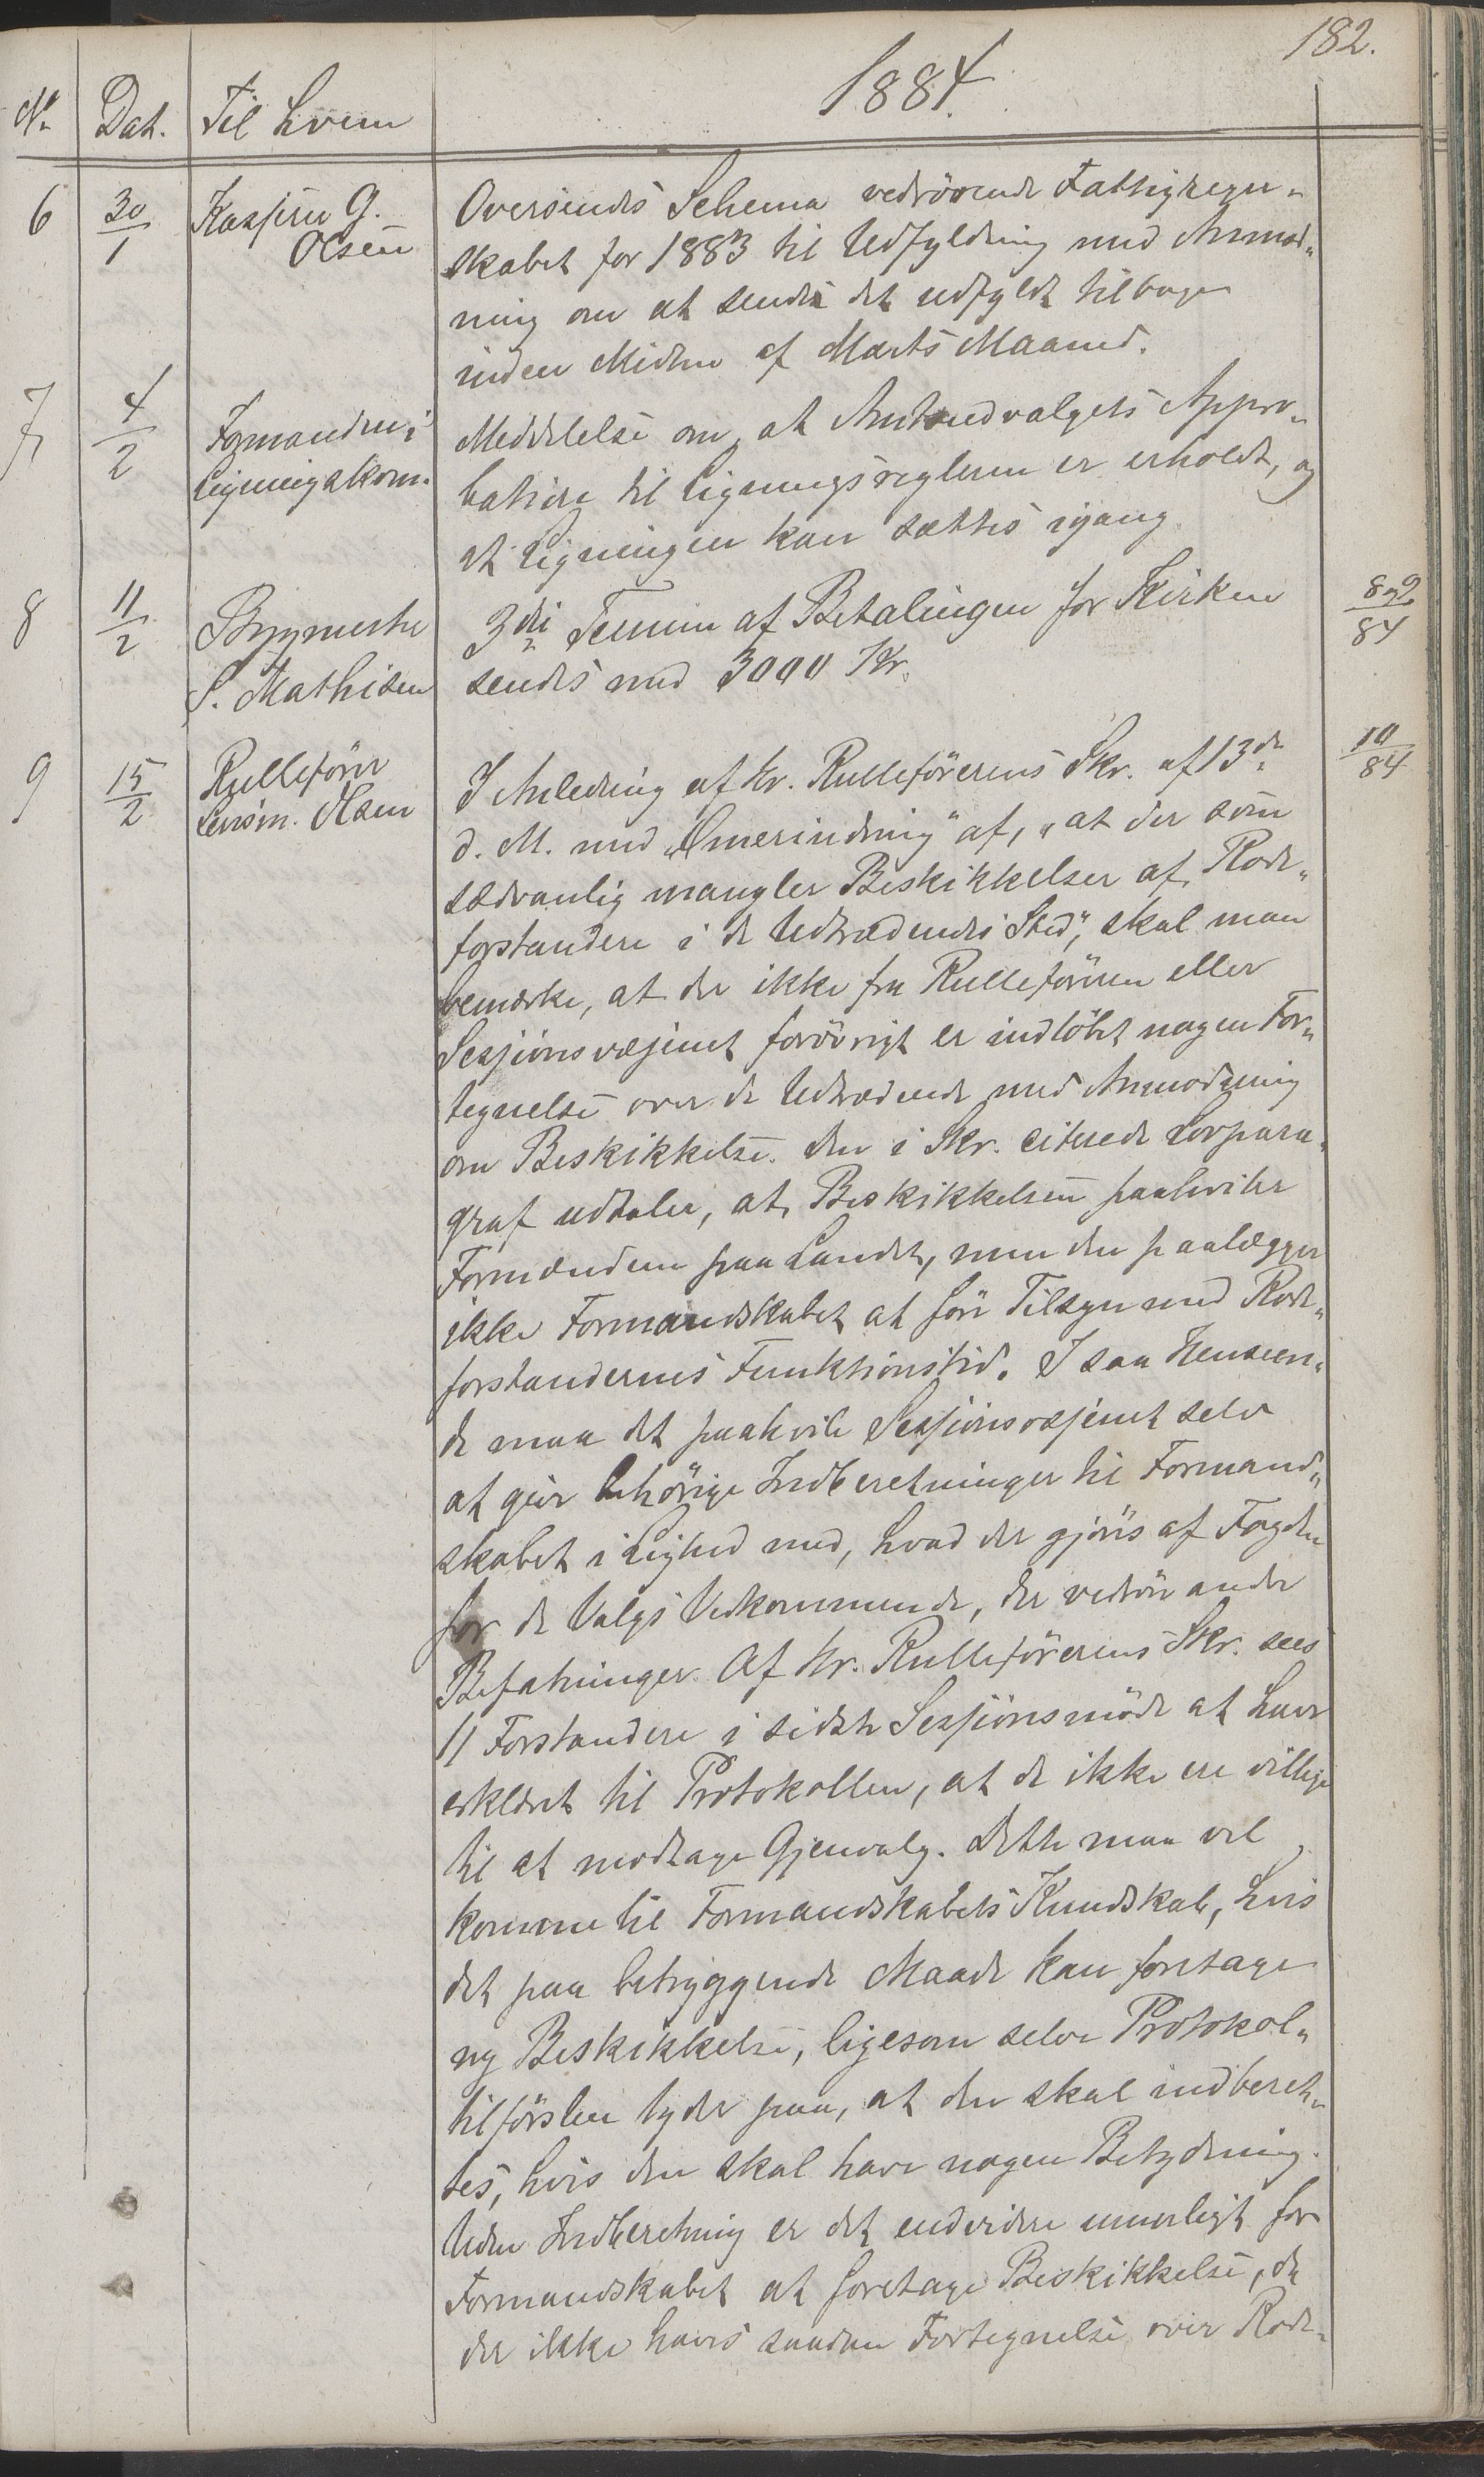 182.
1884.
No Dat. Til hvem
6 30/1 Kasserer G. Olsen
Oversendes Schema vedrörende Fattigregn„
skabet for 1883 til Udfyldning med Anmod„
ning om at sende det udfyldt tilbage
inden Midten af Marts Maaned.
7 4/2 Formanden i Ligningskom.
Meddelelse om, at Amtsudvalgets Appro„
bation til Ligningsreglerne er erholdt, og
at Ligningen kan sættes igang.
8 11/2 Bygmester S. Mathisen
3die Termin af Betalingen for Kirken
sendes med 3000 Kr.
8 og 9/84
9 15/2 Rulleförer Lensm. Olsen
10/84
I Anledning af Hr. Rulleförerens Skr. af 13de
d. M. med „Omerindring" af, „at der som
sædvanlig mangler Beskikkelser af Rode„
forstandere i de Udtrædendes Sted", skal man
bemærke, at der ikke fra Rulleföreren eller
Sessionsvæsenet forövrigt er indlöbet nogen For„
tegnelse over de Udtrædende med Anmodning
om Beskikkelse. Den i Skr. citerede Lovpara„
graf udtaler, at Beskikkelsen paahviler
Formændene paa Landet, men den paalægger
ikke Formandskabet at före Tilsyn med Rode„
forstandernes Funktionstid. I saa Henseen„
de maa det paahvile Sessionsvæsenet selv
at give behörige Indberetninger til Formand„
skabet i Lighed med, hvad der gjöres af Fogden
for de Valgs Vedkommende, der vedröre andre
Befatninger. Af Hr. Rulleförerens Skr. sees
11 Forstandere i sidste Sessionsmöde at have
erklæret til Protokollen, at de ikke ere villige
til at modtage Gjenvalg. Dette maa vel
komme til Formandskabets Kundskab, hvis
det paa betryggende Maade kan foretage
ny Beskikkelse, ligesom selve Protokol„
tilförslen tyder paa, at den skal indberet„
tes, hvis den skal have nogen Betydning.
Uden Indberetning er det endvidere umuligt for
Formandskabet at foretage Beskikkelse, da
der ikke haves saadan Fortegnelse over Rode„